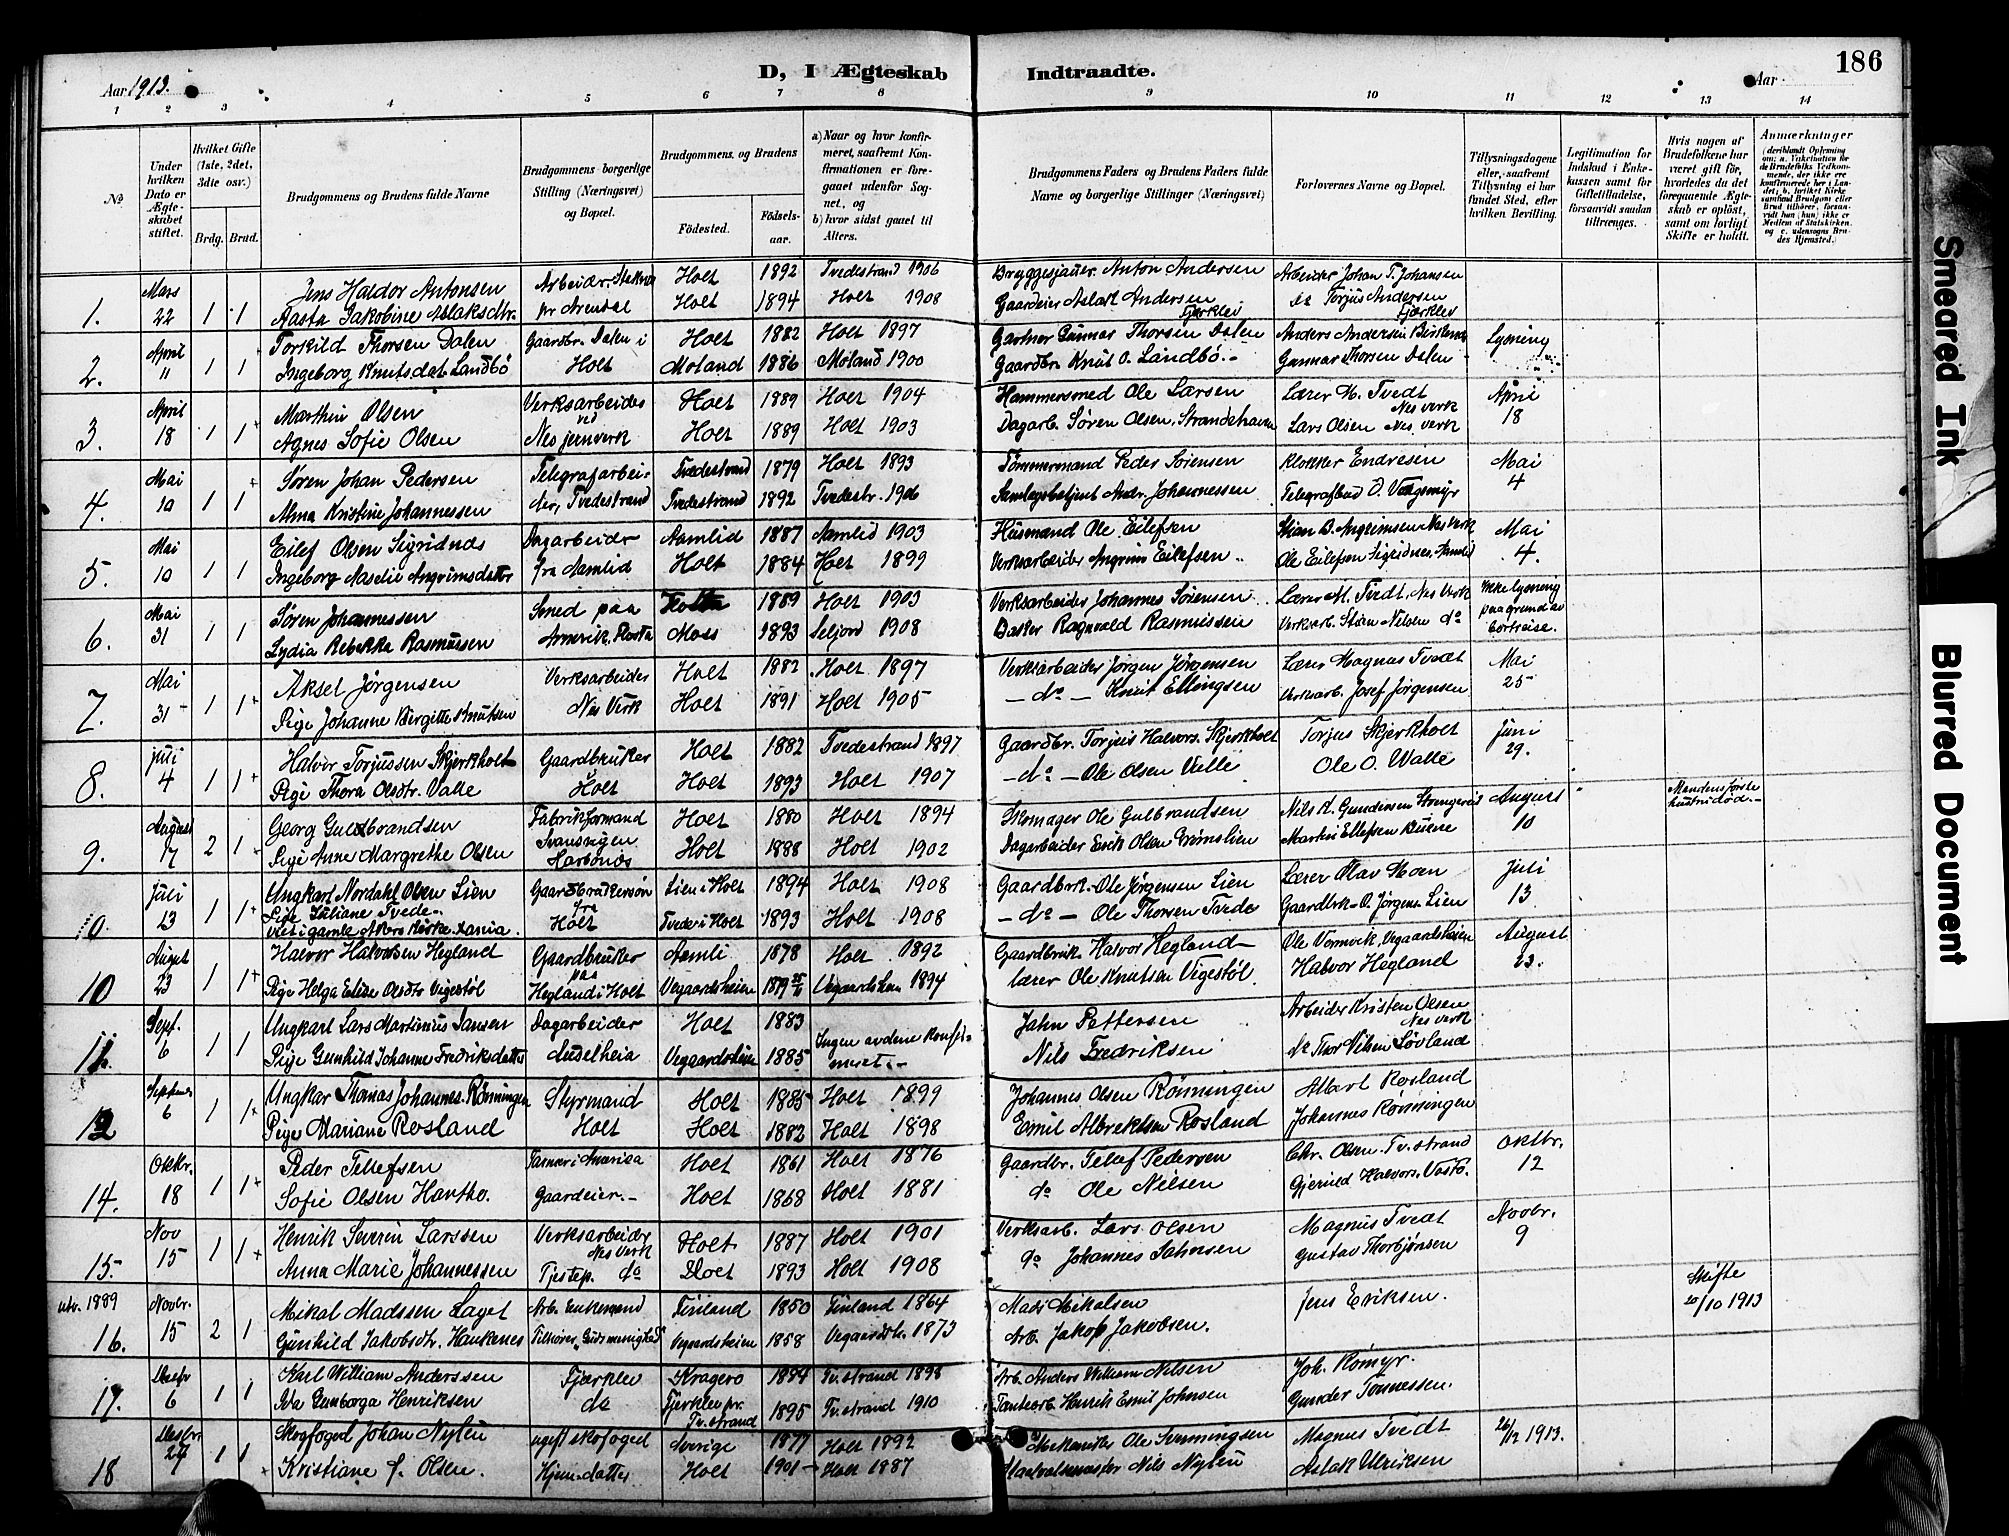 D, I Ægteskab Indtraadte.
186
Aar 1913.
Aar
1 2 3 4 5 6 7 8 9 10 11 12 13 14
No
Under hvilken Dato er Ægteskabet stiftet.
Hvilket Gifte (1ste, 2det, 3die osv.)
Brdg. Brud.
Brudgommens og Brudens fulde Navne
Brudgommens borgerlige Stilling (Næringsvei) og Bopæl.
Brudgommens og Brudens
Födested.
Födselsaar.
a) Naar og hvor konfirmeret, saafremt Konfirmationen er foregaaet udenfor Sognet, og
b) hvor sidst gaaet til Alters.
Brudgommens Faders og Brudens Faders fulde Navne og borgerlige Stillinger (Næringsvei)
Forlovernes Navne og Bopæl.
Tillysningsdagene eller, saafremt Tillysning ei har fundet Sted, efter hvilken Bevilling.
Legitimation for Indskud i Enkekassen samt for Giftetilladelse, forsaavidt saadan tiltrænges.
Hvis nogen af Brudefolkene har været gift för, hvorledes da det foregaaende Ægteskab er oplöst, samt om lovligt Skifte er holdt.
Anmærkninger
1. Mars 22 1 1 Jens Haldor Antonsen Arbeider Holt 1892 Tvedestrand 1906 Bryggesjauer Anton Andersen Arbeider Johan T. Johansen
Aasta Jakobine Aslaksdtr. pr Arendal Holt 1894 Holt 1908 Gaardeier Aslak Andersen Fjærklev do Torjus Andersen Fjærklev
2. April 11 1 1 Torkild Thorsen Dalen Gaardbr. Dalen i Holt 1882 Holt 1897 Gartner Gunnar Thorsen Dalen Anders Andersen Lysning
Ingeborg Knutsdat. Landbö Holt Moland 1886 Moland 1900 Gaardbr. Knut O. Landbö. Gunnar Thorsen Dalen
3. April 18 1 1 Marthin Olsen Verksarbeider ved Holt 1889 Holt 1904 Hammersmed Ole Larsen Lærer M. Tvedt Nes verk April 18
Agnes Sofie Olsen Nes jernverk Holt 1889 Holt 1903 Dagarb. Søren Olsen, Strandehaven Lars Olsen Nes verk
4. Mai 10 1 1 Søren Johan Pedersen Telegrafarbei- Tvedestrand 1879 Holt 1893 Tömmermand Peder Sörensen Klokker Endresen Mai 4
Alma Kristine Johannessen der, Tvedestrand Tvedestrand 1892 Tvedestr. 1906 Samlagsbetjent Andr. Johannessen Telegrafbud O. Vangsmyr
5. Mai 10 1 1 Eilef Olsen Sigridnes Dagarbeider Aamlid 1887 Aamlid 1903 Husmand Ole Eilefsen Stian B. Angrimsen Nes verk Mai 4.
Ingeborg Naselie Angrimsdatter fra Aamlid Holt 1884 Holt 1899 Verksarbeider Angrim Eilefsen Ole Eilefsen Sigridnes, Aamlid
6. Mai 31 1 1 Søren Johannessen Smed paa Holt 1889 Holt 1903 Verksarbeider Johannes Sörensen Lærer M. Tvedt, Nes Verk Ikke lysning paa grund av bortreise.
Lydia Rebekka Rasmussen Moss 1893 Seljord 1908 Baker Ragnvald Rasmussen Verksarb. Stian Nilsen do
7. Mai 31 1 1 Aksel Jörgensen Verksarbeider Holt 1882 Holt 1897 Verksarbeider Jörgen Jörgensen Lærer Magnus Tvedt Mai 25
Pige Johanne Birgitte Knutsen Nes Verk Holt 1891 Holt 1905 - do - Knut Ellingsen Verksarb. Josef Jörgensen
8. Juli 4 1 1 Halvor Torjussen Skjerkholt Gaardbruker Holt 1882 Tvedestrand 1897 Gaardbr. Torjus Halvors. Skjerkholt Torjus Skjerkholt Juni 29.
Pige Thora Olsdtr. Valle i Holt Holt 1893 Holt 1907 - do - Ole Olsen Valle Ole O. Valle
9. August 17 2 1 Georg Guldbrandsen Fabrikformand Holt 1880 Holt 1894 Skomager Ole Gulbrandsen Nils K. Gundersen Strengereid August 10 Mandens første hustru död
Pige Anne Margrethe Olsen Holt 1888 Holt 1902 Dagarbeider Erik Olsen Grömslien Martin Ellefsen
10. Juli 13 1 1 Ungkarl Nordahl Olsen Lien Gaardbrukersön Lien i Holt 1894 Holt 1908 Gaardbrk. Ole Jörgensen Lien Lærer Olav Moen Juli 13
Pige Juliane Tvede fra Holt Tvede i Holt 1893 Holt 1908 - do - Ole Thorsen Tvede Gaardbrk. O. Jörgens. Lien
viet i gamle Akers Kirke
10 August 23 1 1 Halvor Halvorsen Hegland Gaardbruker paa Aamli 1878 Holt 1892 Gaardbruk. Halvor Hegland Ole Vormvik, Vegaardsheien August 23.
Pige Helga Elise Olsdtr Vigestöl Hegland i Holt Vegaardsheien 1879 Vegaardshei 1894 lærer Ole Knutsen Vigestöl Halvor Hegland
11. Sept. 6 1 1 Ungkarl Lars Martinius Jansen Dagarbeider Holt 1883 Ingen av dem konfirmeret. Jahn Pettersen Arbeider Kristen Olsen Nes verk
Pige Gunhild Johanne Fredriksdatter Auselheia Vegaardsheien 1885 Nils Fredriksen do Thor Nilsen Lövland
12 September 6 1 1 Ungkar Thomas Johannes. Rönningen Styrmand Holt 1885 Holt 1899 Johannes Olsen Rönningen Albert Rosland
Pige Mariane Rosland Holt Holt 1882 Holt 1898 Emil Albrektsen Rosland Johannes Rönningen
14. Oktbr. 18 1 1 Peder Tellefsen Farmer i Amerika Holt 1861 Holt 1876 Gaardbr. Tellef Pedersen Chr. Olsen. Tv.strand Oktbr. 12
Sofie Olsen Hantho. Gaardeier. Holt 1868 Holt 1881 do Ole Nilsen
15. Nov 15 1 1 Henrik Severin Larssen Verksarbeider Nes verk Holt 1887 Holt 1901 Verksarb. Lars Olsen Magnus Tvedt Novbr. 9
Anna Marie Johannessen Tjestep. do Holt 1893 Holt 1908 do Johannes Gustav Thorbjönsen
utv. 1889
16. Novbr. 15 2 1 Mikal Madssen Laget Arb. Enkemand Finland 1850 Finland 1864 Mads Mikalsen Jens Eriksen. Skifte 20/10 1913
Gunhild Jakobsdtr. Haukenes Tilhører Guds menighed Vegaardsheien 1858 Vegaardsh. 1873 Arb. Jakop Jakobsen.
17. Desbr 6 1 1 Karl William Anderssen Fjærklev Kragerø 1884 Tv.strand 1898 Arb. Anders William Nilsen Joh. Römyr.
Ida Gunborga Henriksen do Fjerklev pr. Tv.strand 1895 Tv.strand 1910 Henrik Emil Johnsen Gunder Tönnessen.
18 Desbr 27 1 1 Skogfoged Johan Nylen ugift skofoged Sverige 1877 Holt 1892 Ole Svenningsen Magnus Tvedt 26/12 1913.
Kristiane J. Olsen. Hjem.datter Holt 1901 Holt 1887 Nils Nylen Aslak Ulriksen
Smeared Ink
Blurred Document